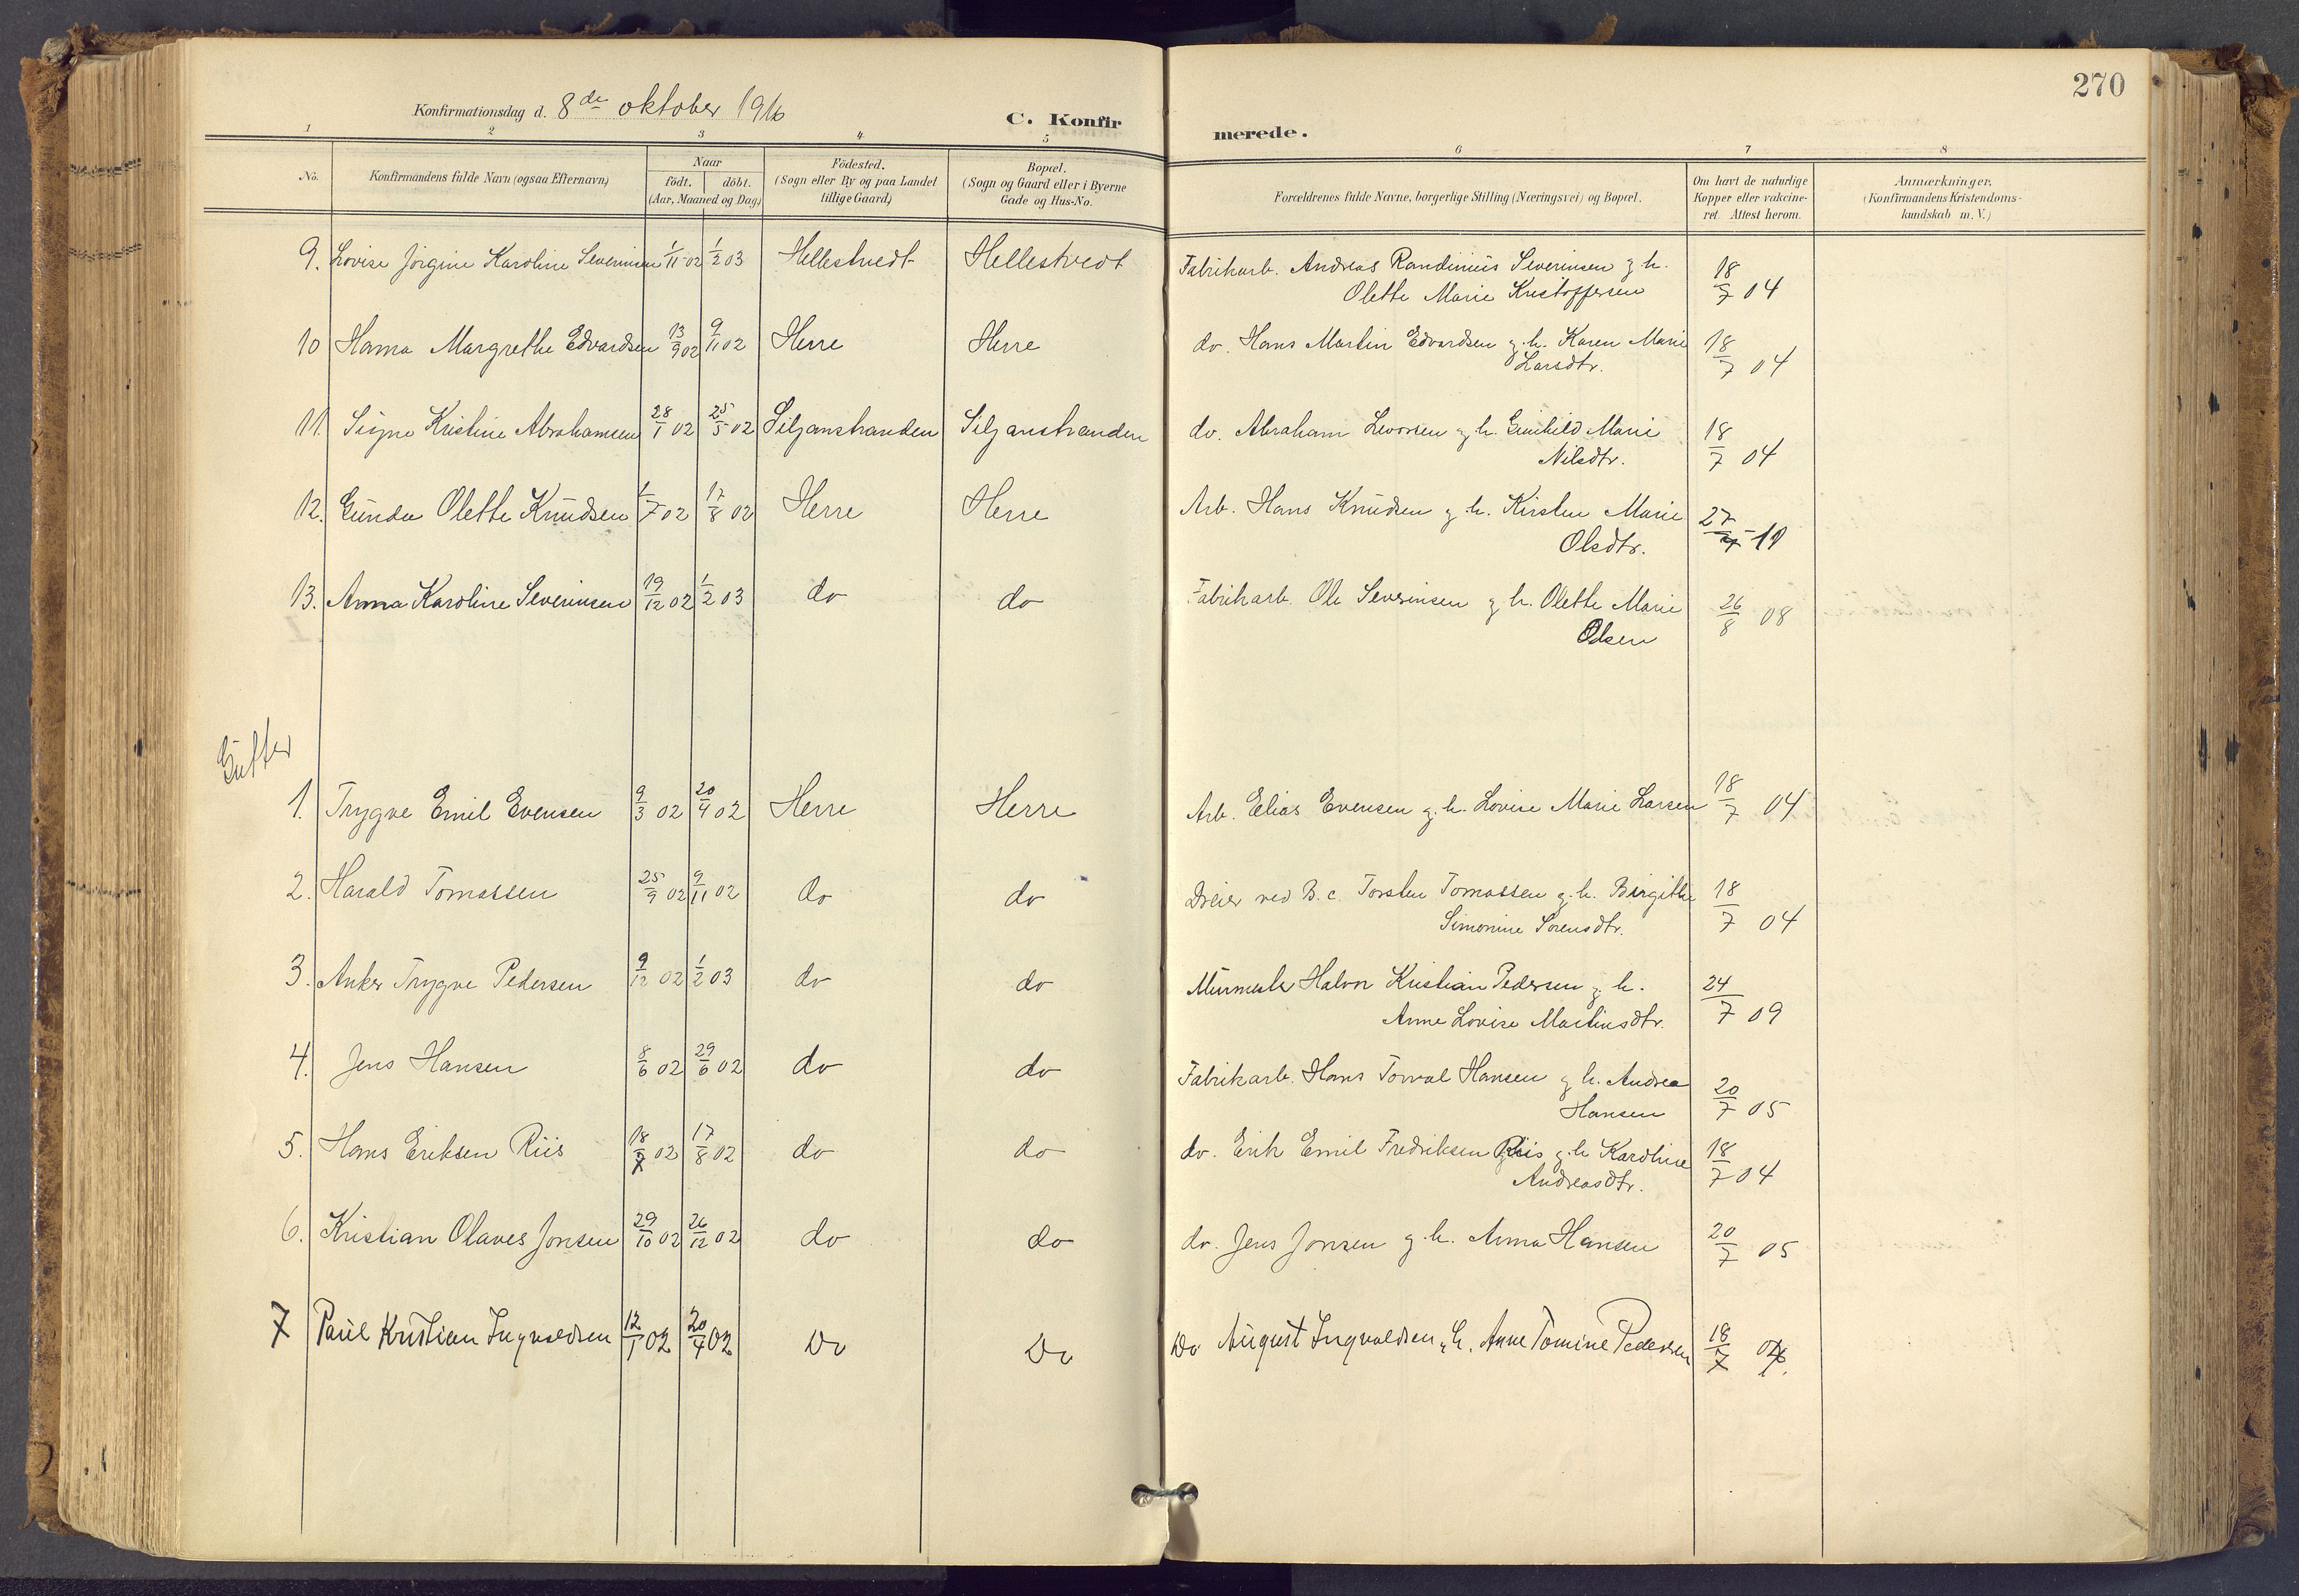 270
Konfirmationsdag d. 8de oktober 1916
C. Konfirmerede.
1 2 3 4 5 6 7 8
No.
Konfirmandens fulde Navn (ogsaa Efternavn)
Naar
födt. döbt.
(Aar, Maaned og Dag)
Födested.
(Sogn eller By og paa Landet
tillige Gaard)
Bopæl.
(Sogn og Gaard eller i Byerne
Gade og Hus-No.
Forældrenes fulde Navne, borgerlige Stilling (Næringsvei) og Bopæl.
Om havt de naturlige
Kopper eller vakcine-
ret. Attest herom.
Anmærkninger.
(Konfirmandens Kristendoms-
kundskab m. V.)
9. Lovise Jørgine Karoline Severinsen 1/11 02 1/2 03 Hellestvedt Hellestvedt Fabrikarb. Andreas Randinius Severinsen g. h. 18/7 04
Olette Marie Kristoffersen
10 Hanna Margrethe Edvardsen 13/9 02 9/11 02 Herre Herre do. Hans Martin Edvardsen g. h. Karen Marie 18/7 04
Larsdtr.
11. Signe Kristine Abrahamsen 28/1 02 25/5 02 Siljanstranden Siljanstranden do. Abraham Levorsen g. h. Gunhild Marie 18/7 04
Nilsdtr.
12. Gunda Olette Knudsen 1/7 02 17/8 02 Herre Herre Arb. Hans Knudsen g. h. Kirsten Marie
Olsdtr.
13. Anna Karoline Severinsen 19/12 02 1/2 03 do do Fabrikarb. Ole Severinsen g. h. Olette Marie 26/8 08
Olsen
Gutter
1. Trygve Emil Evensen 9/3 02 20/4 02 Herre Herre Arb. Elias Evensen g. h. Lovise Marie Larsen 18/7 04
2. Harald Tomassen 25/9 02 9/11 02 do do Dreier ved B. c. Torsten Tomassen g. h. Birgithe 18/7 04
Simonine Sorensdtr.
3. Anker Trygve Pedersen 9/12 02 1/2 03 do do Murmester Halvor Kristian Pedersen g. h. 24/7 09
Anne Lovise Martinsdtr.
4. Jens Hansen 8/6 02 29/6 02 do do Fabrikarb. Hans Torval Hansen g. h. Andrea 20/7 05
Hansen
5. Hans Eriksen Riis 18/7 02 17/8 02 do do do. Erik Emil Fredriksen Riis g. h. Karoline 18/7 04
Andreasdtr.
6. Kristian Olaves Jonsen 29/10 02 26/12 02 do do do. Jens Jonsen g. h. Anna Hansen 20/7 05
7 Paul Kristian Ingvaldsen 12/1 02 20/4 02 Do Do Do August Ingvaldsen g. h. Anne Tomine Pedersen 18/7